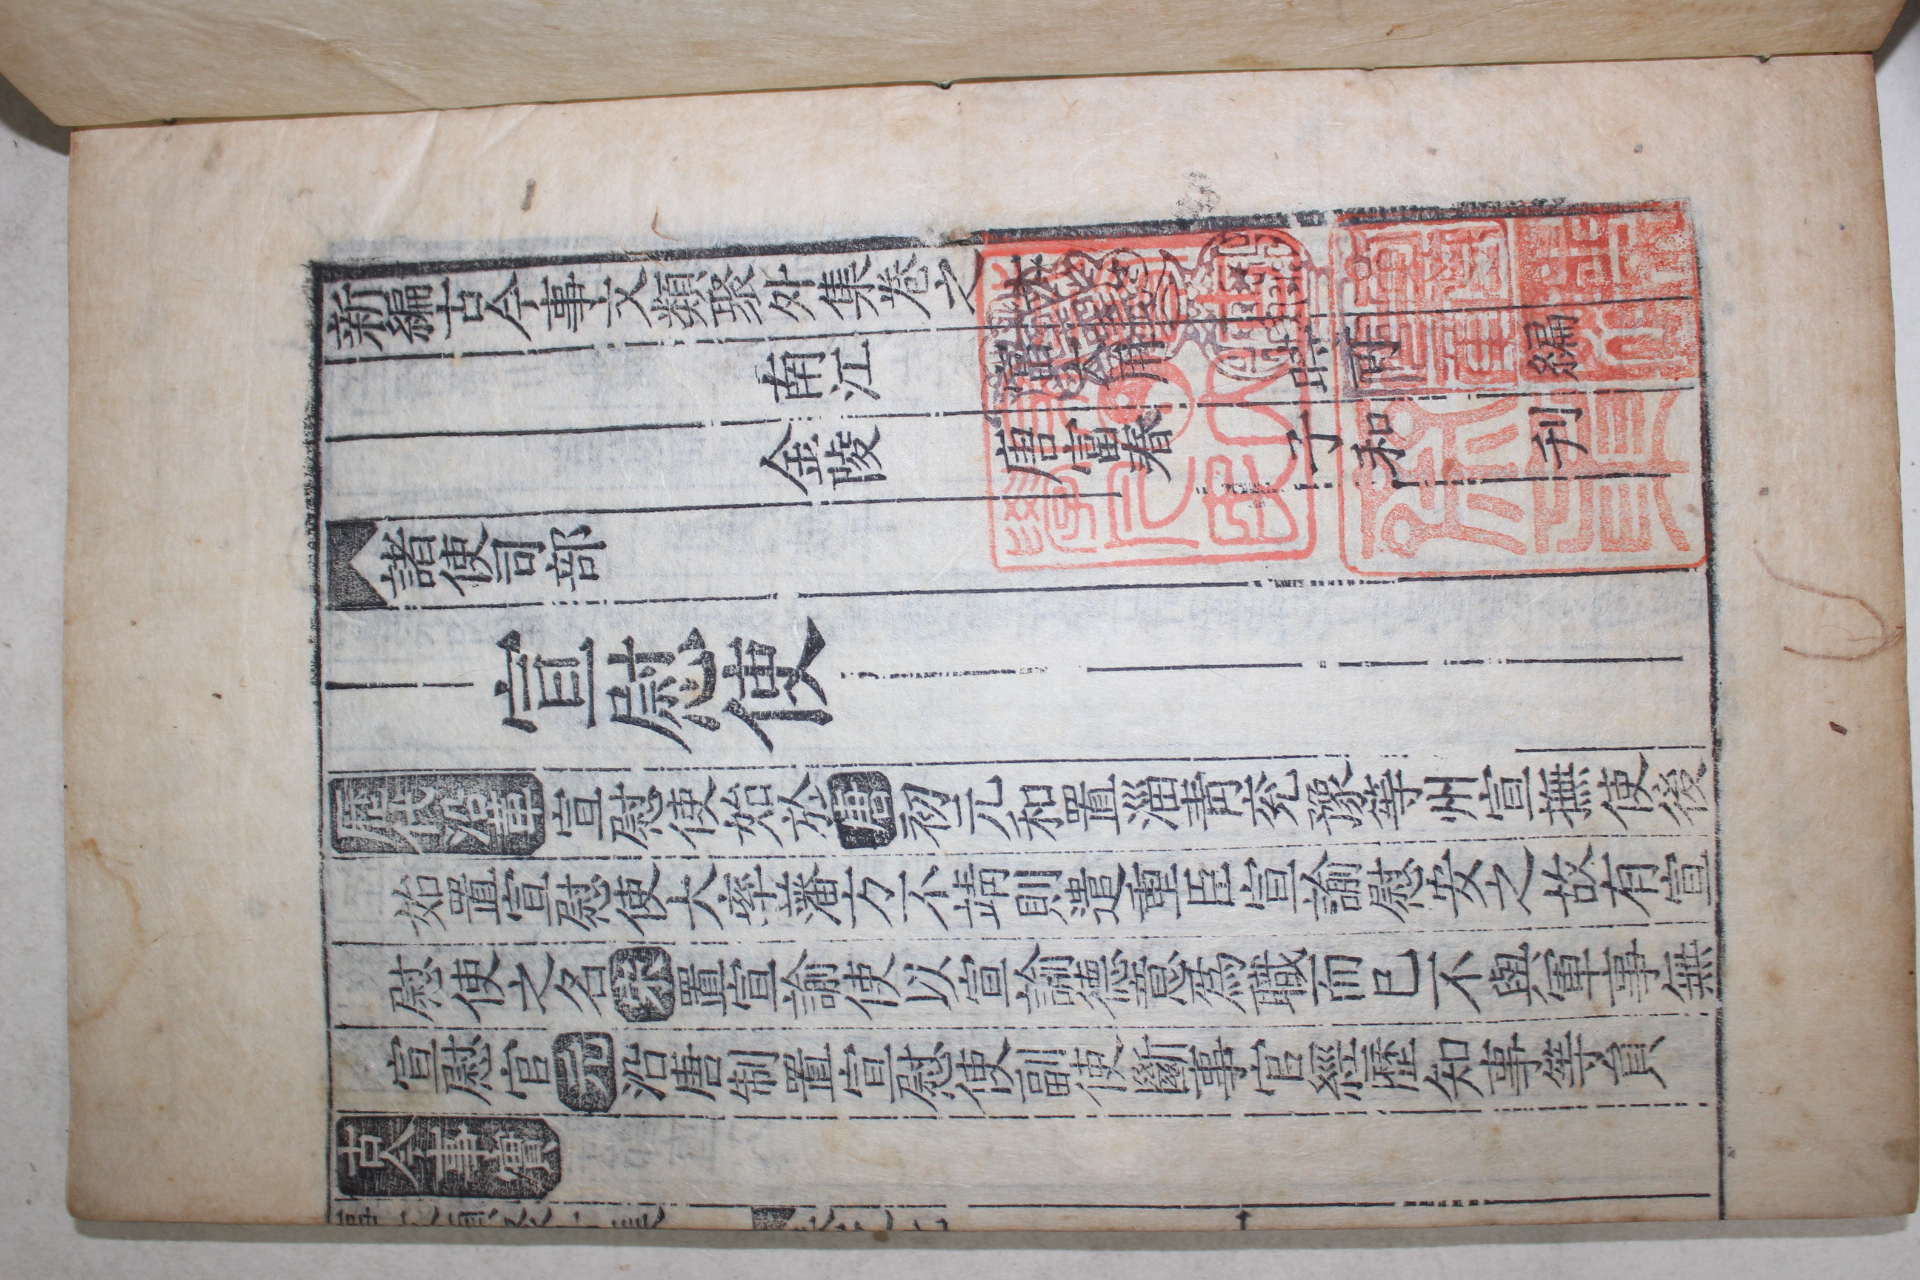 新編古今事文類聚外集卷之
南江 富大用 時可 編
金陵 唐富春 子和 刋
諸使司部
宣慰使
歷代沿革 宣慰使始於唐初元和置淄靑兖豫等州宣撫使後
始置宣慰使大率藩方不靖則遣重臣宣諭慰安之故有宣
慰使之名宋置宣諭使以宣諭德意爲職而已不與軍事無
宣慰官元沿唐制置宣慰使副使斷事官經歷知事等員
古今事實